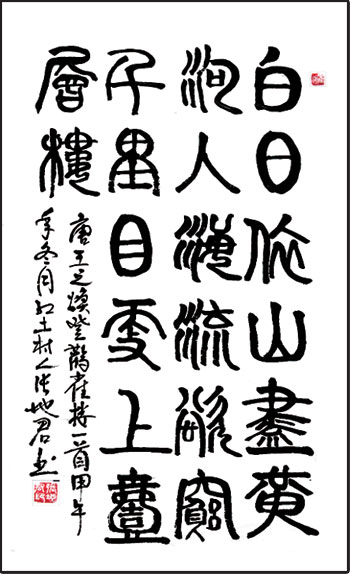 白日依山盡黃
河入海流欲窮
千里目更上壹
層樓
唐王之煥登鸛雀樓一首甲午
年冬月紅土村人張地君書